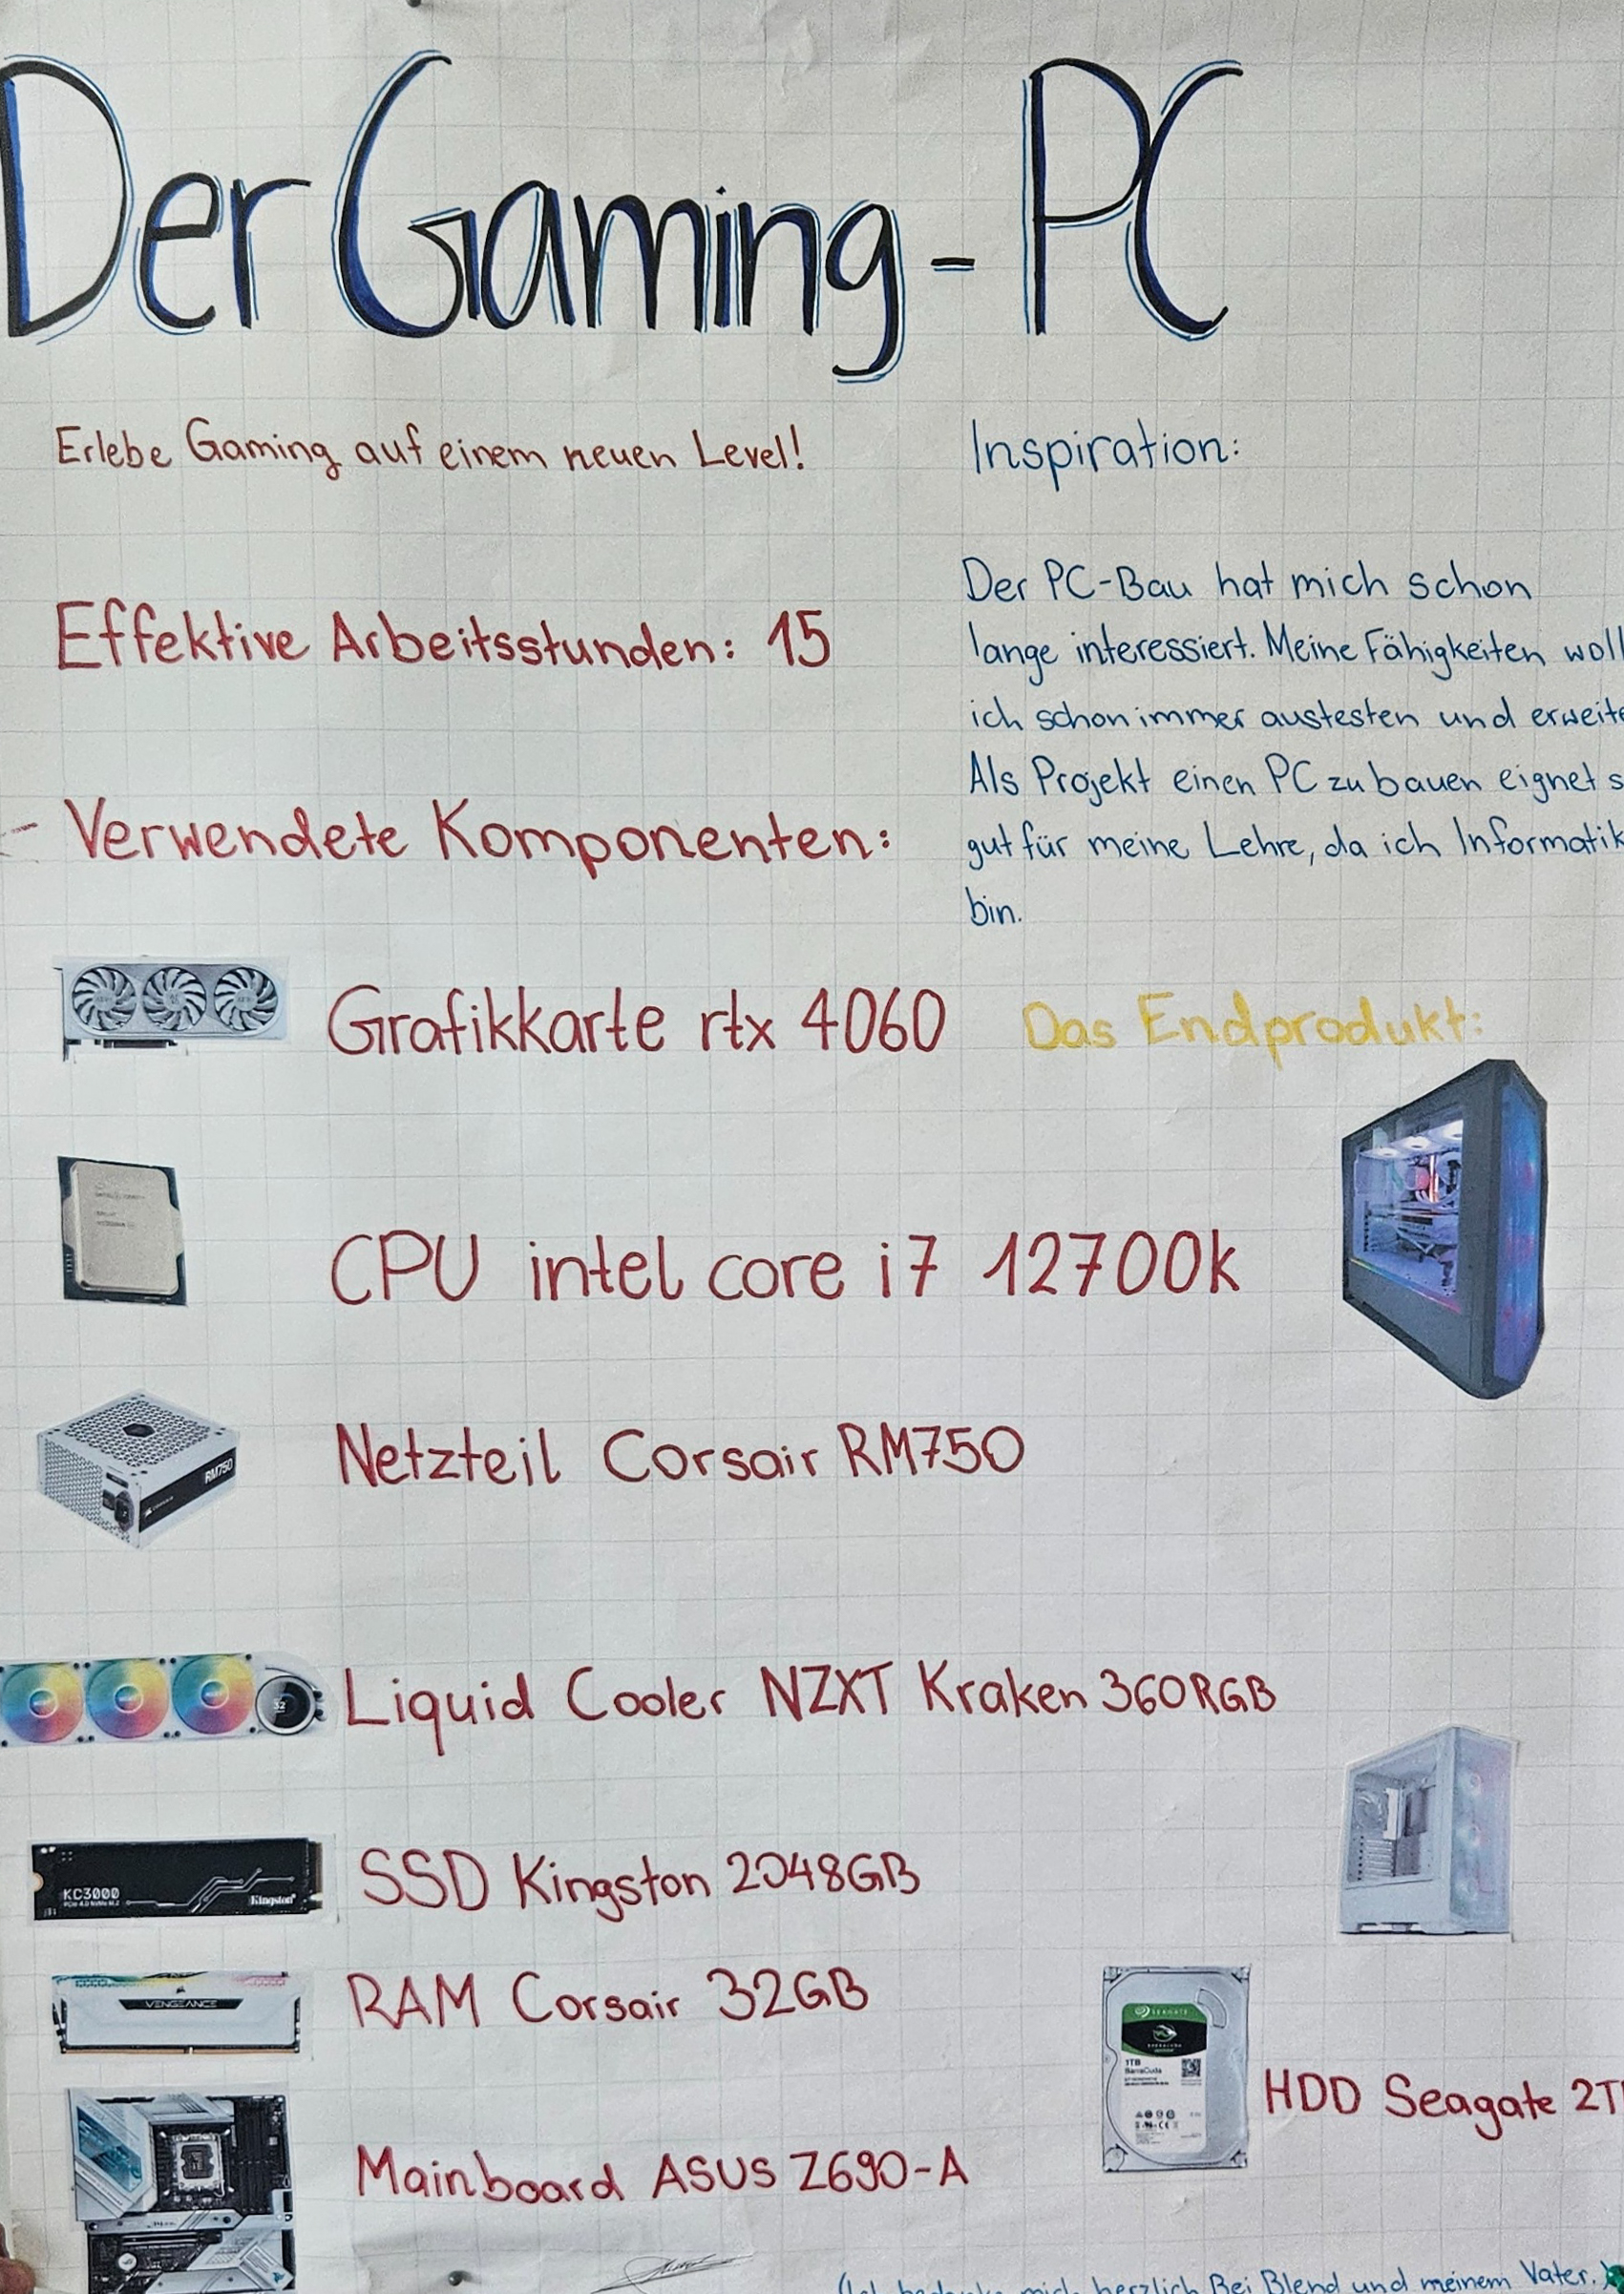 Der Gaming-PC
Erlebe Gaming auf einem neuen Level!
Effektive Arbeitsstunden: 15
- Verwendete Komponenten:
Grafikkarte rtx 4060
CPU intel core i7 12700k
RM750
Netzteil Corsair RM750
Liquid Cooler NZXT Kraken 360RGB
KC3000
Kingston
SSD Kingston 2048GB
VENGEANCE
RAM Corsair 32GB
Mainboard ASUS Z690-A
Inspiration:
Der PC-Bau hat mich schon
lange interessiert. Meine Fähigkeiten woll
ich schon immer austesten und erweite
Als Projekt einen PC zu bauen eignet s
gut für meine Lehre, da ich Informatik
bin.
Das Endprodukt:
SEAGATE
1TB
BarraCuda
HDD Seagate 2T
mich herzlich Bei Blend und meinem Vater.